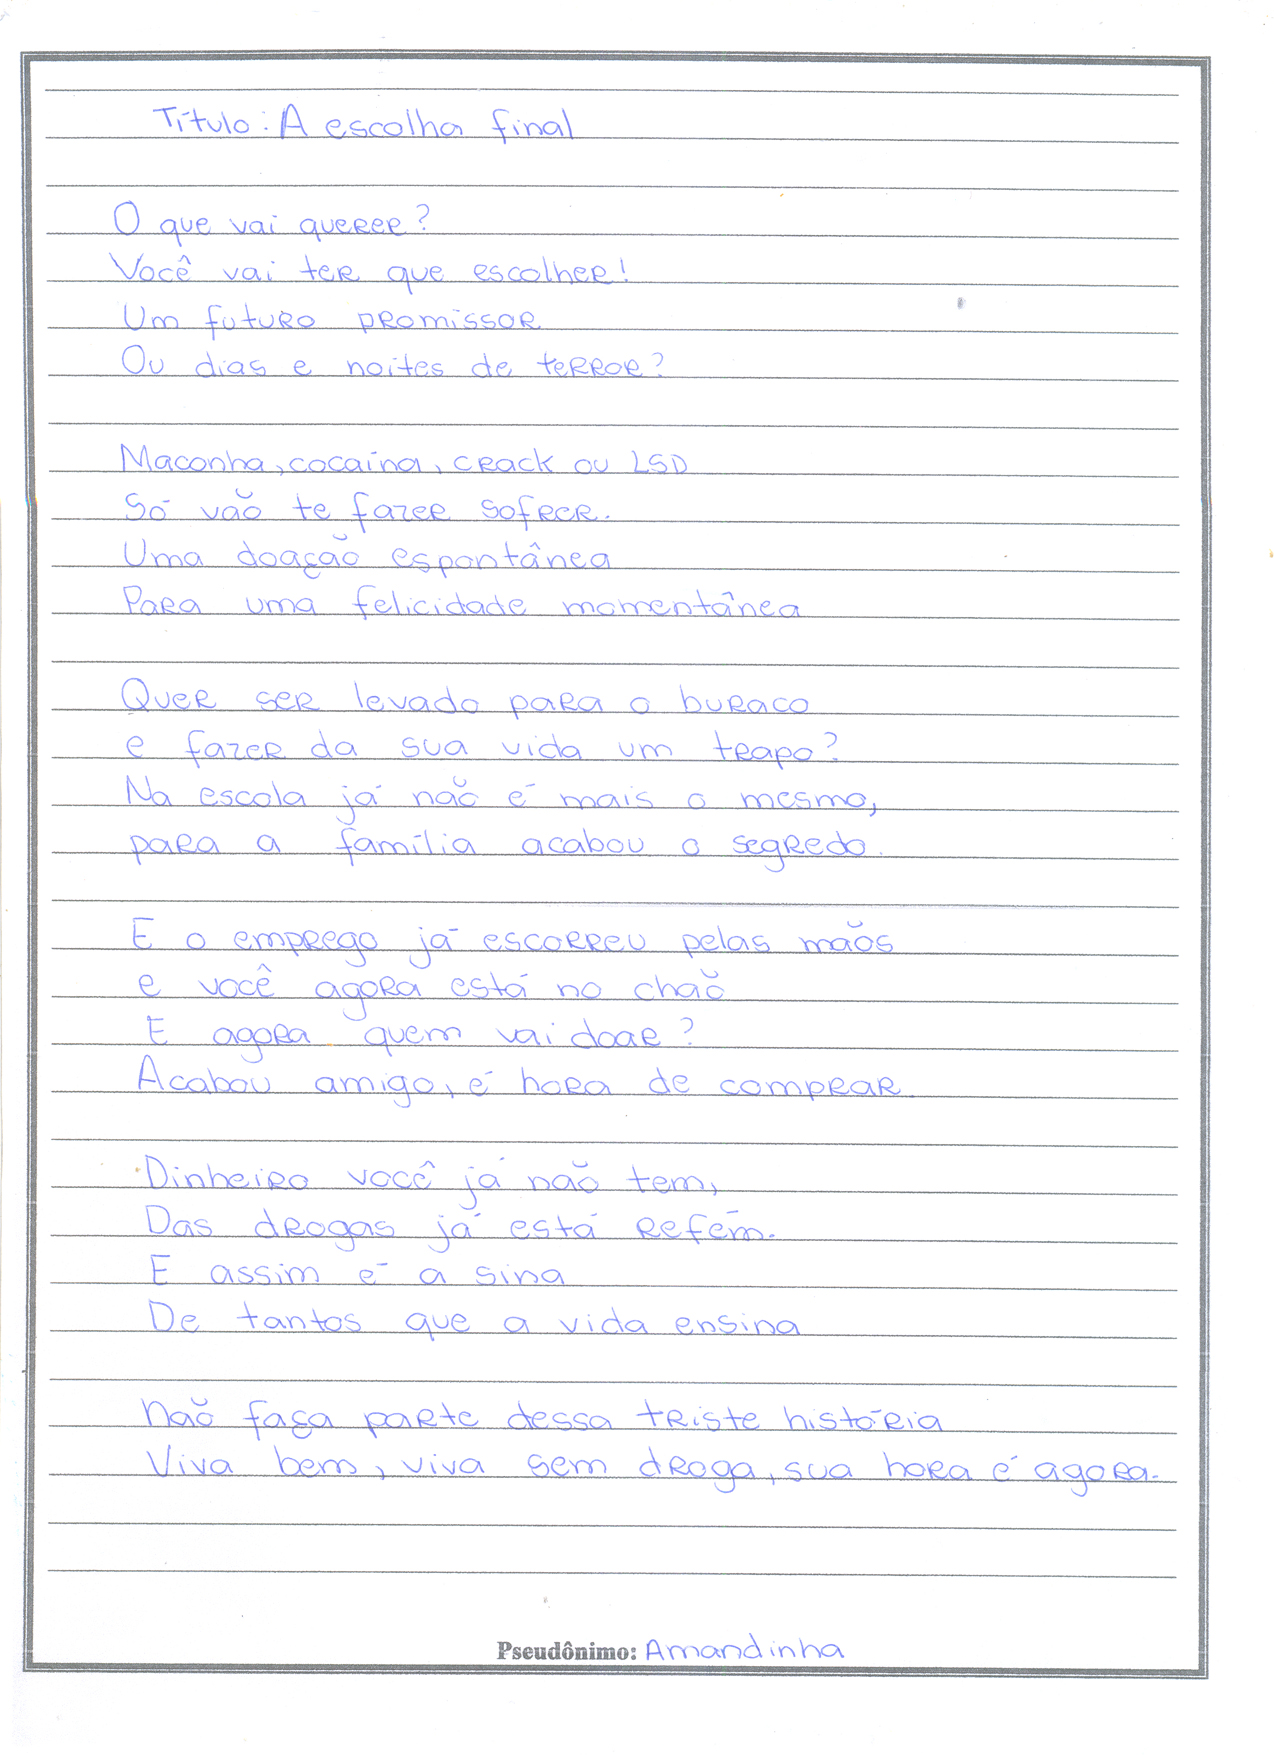 Título: A escolha final
O que vai querer?
Você vai ter que escolher!
Um futuro promissor
Ou dias e noites de terror?
Maconha, cocaína, crack ou LSD
Só vão te fazer sofrer.
Uma doação espontânea
Para uma felicidade momentânea
Quer ser levado para o buraco
e fazer da sua vida um trapo?
Na escola já não é mais o mesmo,
para a família acabou o segredo.
E o emprego já escorreu pelas mãos
e você agora está no chão
E agora quem vai doar?
Acabou amigo, é hora de comprar.
Dinheiro você já não tem,
Das drogas já está refém.
E assim é a sina
De tantos que a vida ensina
Não faça parte dessa triste história
Viva bem, viva sem droga, sua hora é agora.
Pseudônimo: Amandinha